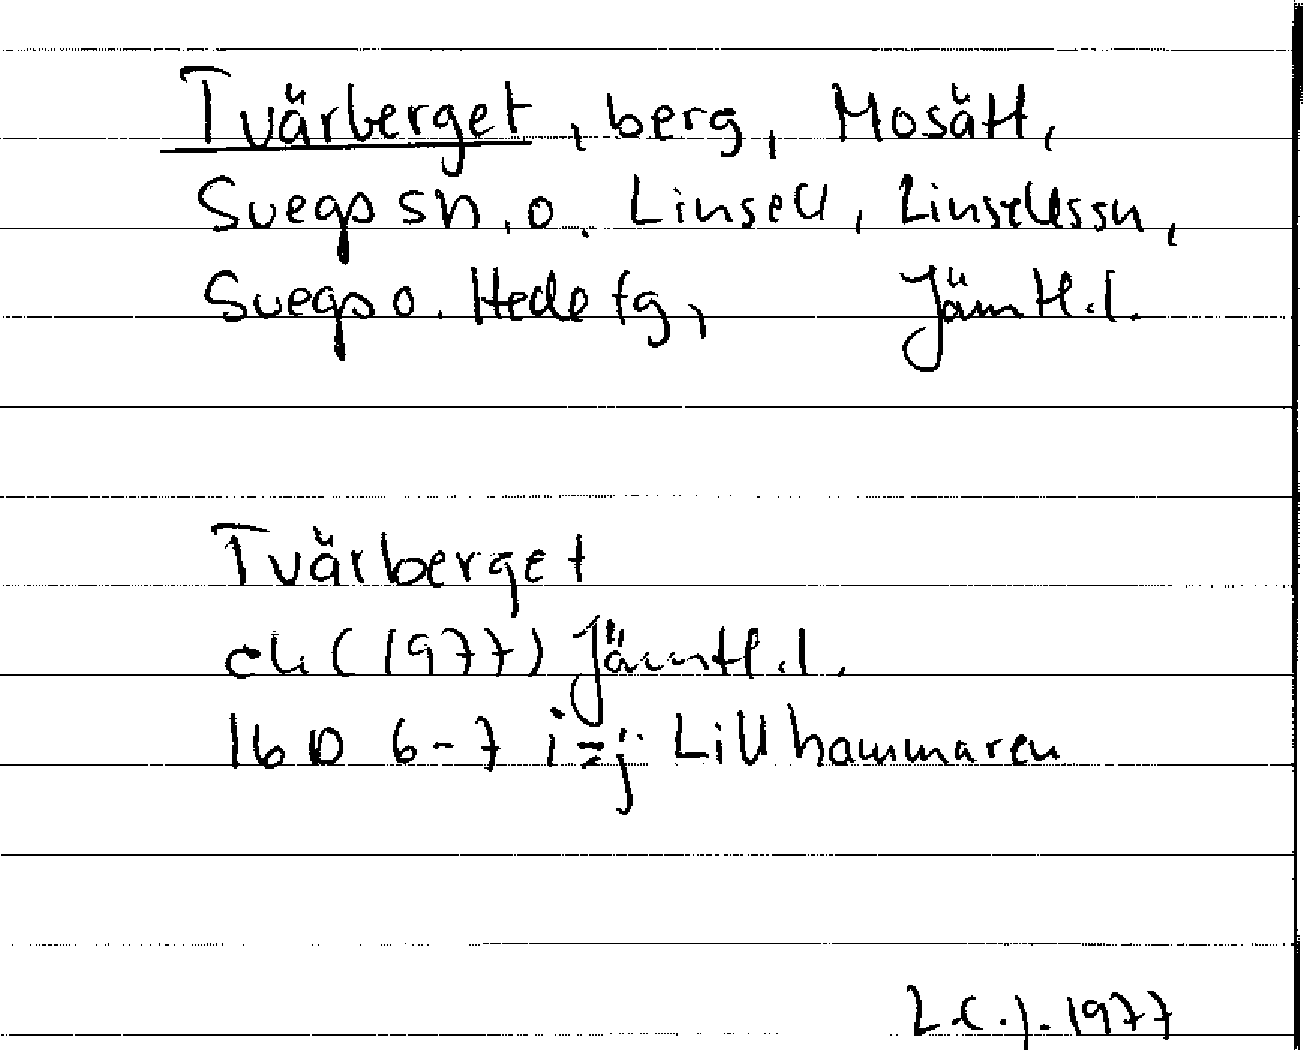 Tvärberget, berg, Mosätt,
Svegs sn. o. Linsell, Linsells sn,
Svegs o. Hede tg, Jämtl.l.
Tvärberget
ek (1977) Jämtl.l.
16 D 6-7 i-j Lillhammaren
L.C.J. 1977